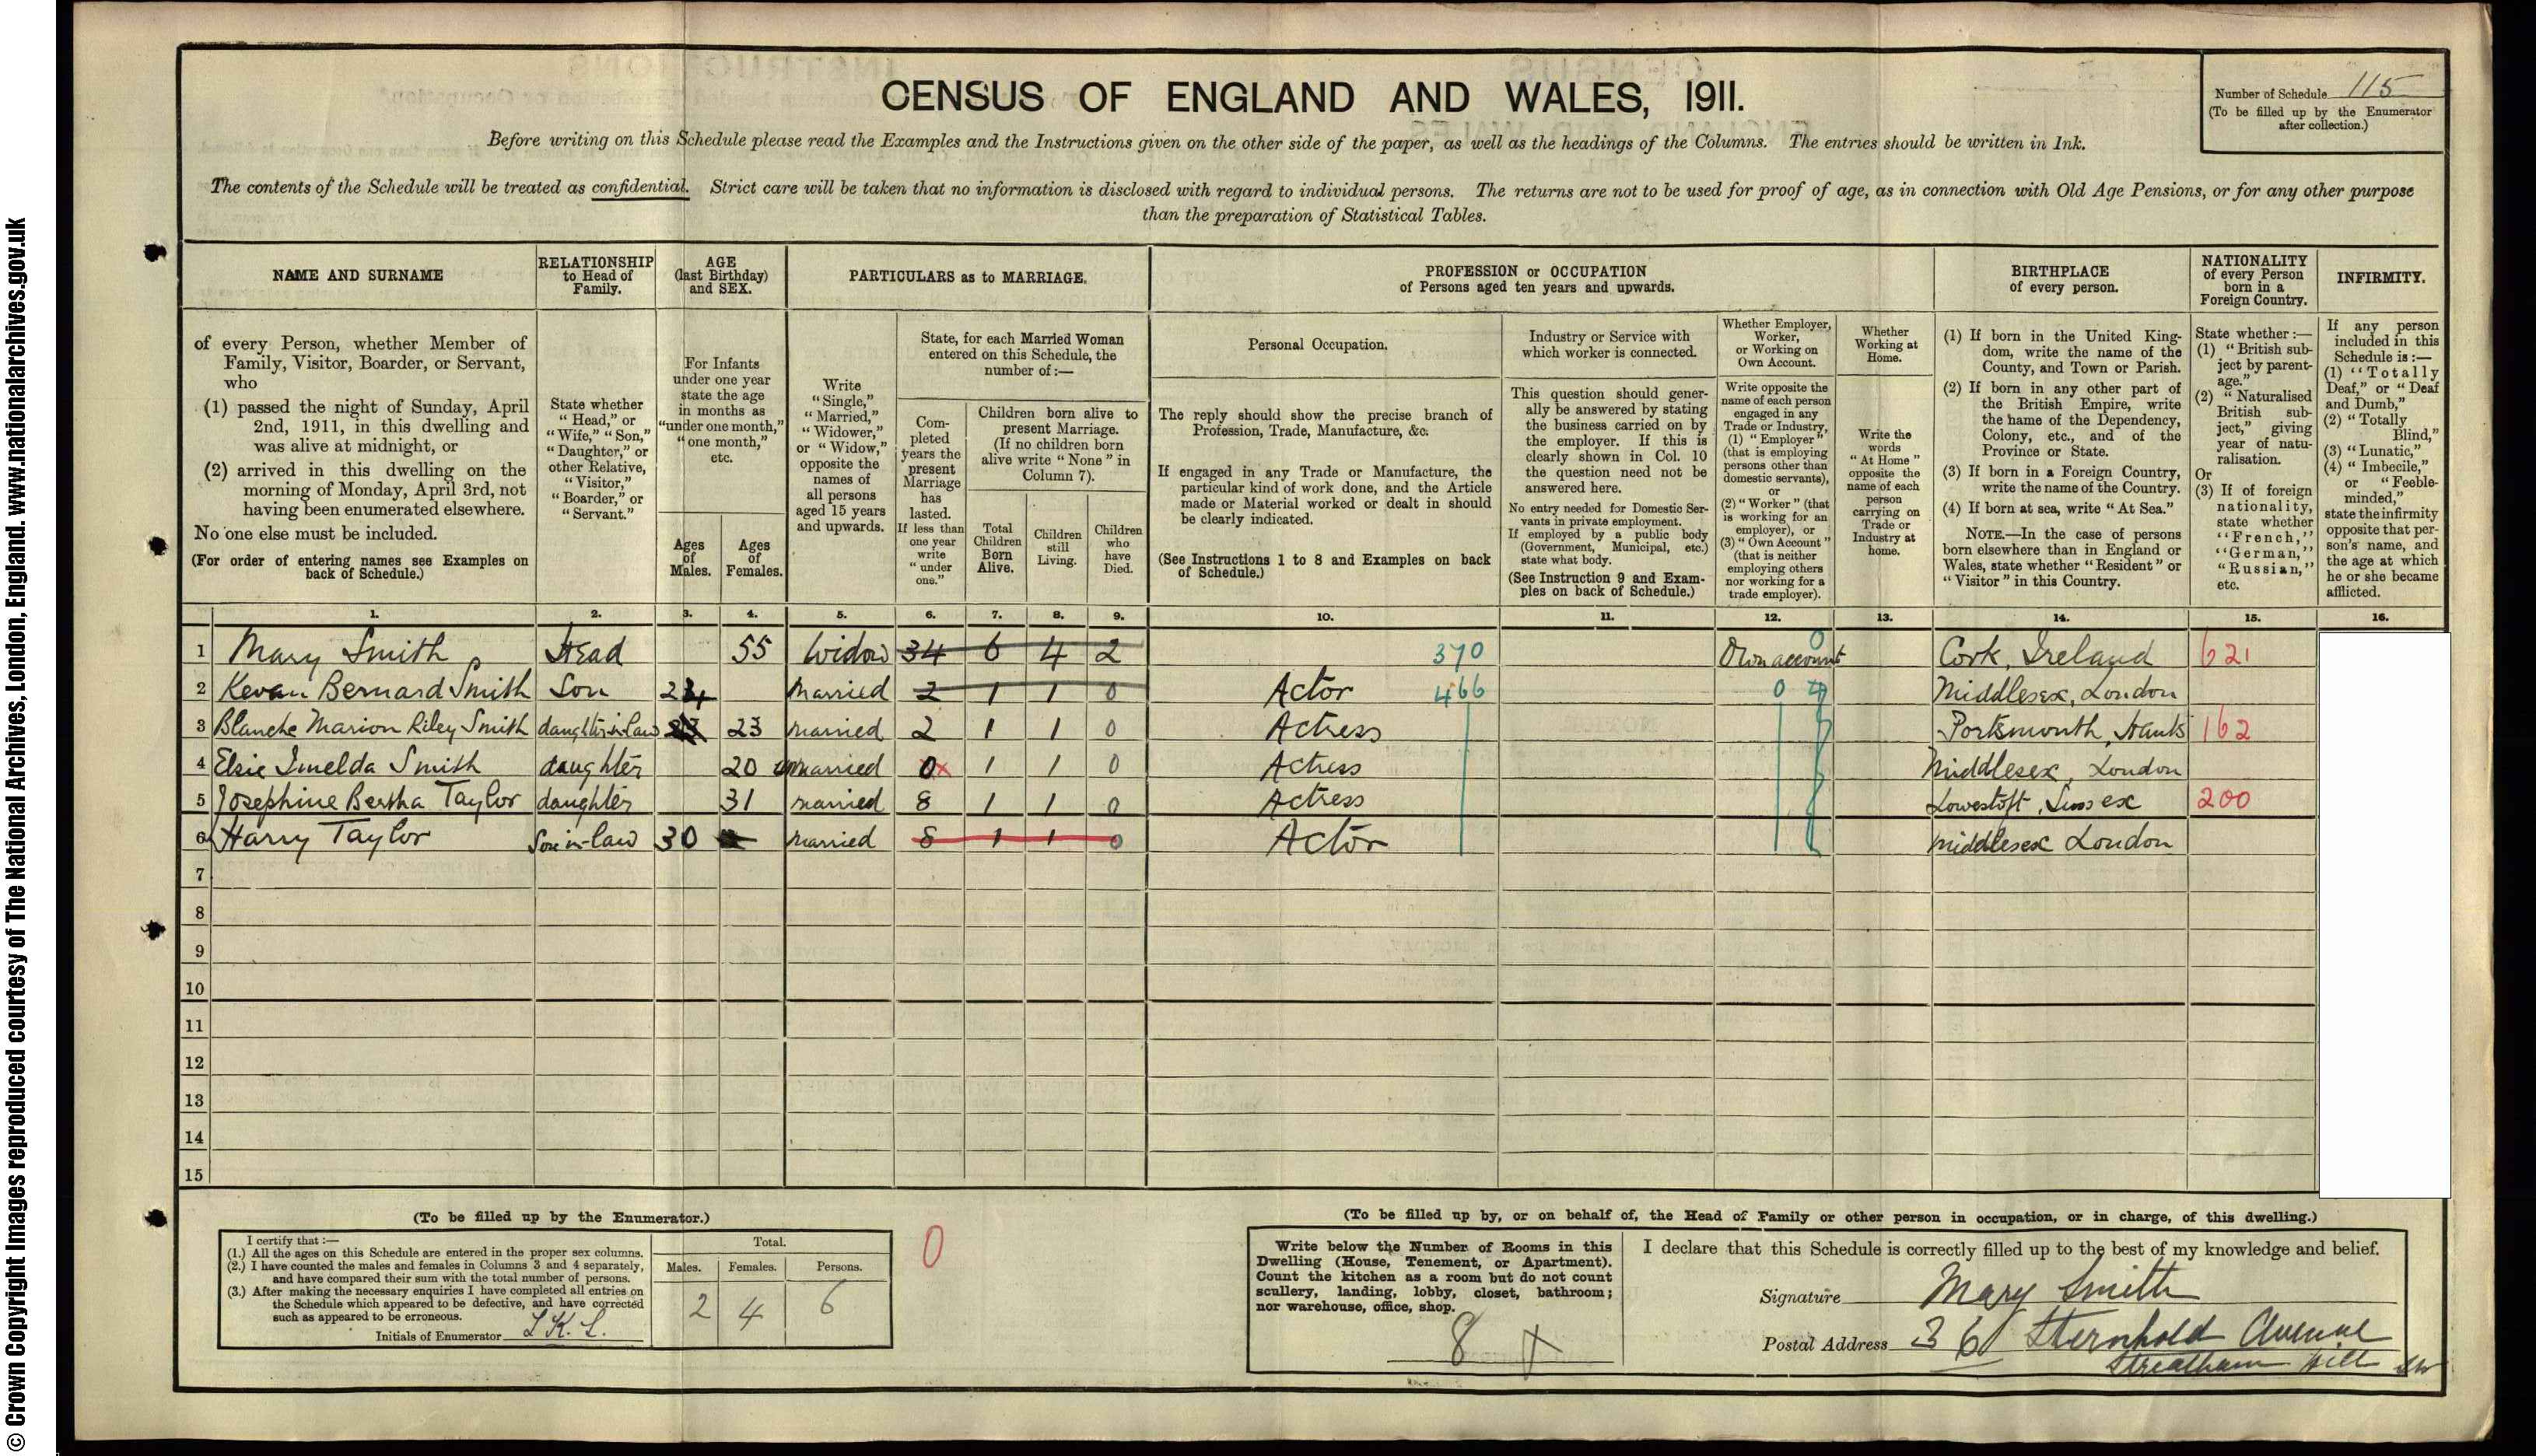 © Crown Copyright Images reproduced courtesy of The National Archives, London, England. www.nationalarchives.gov.uk
CENSUS OF ENGLAND AND WALES, 1911.
Number of Schedule 115
(To be filled up by the Enumerator after collection.)
Before writing on this Schedule please read the Examples and the Instructions given on the other side of the paper, as well as the headings of the Columns. The entries should be written in Ink.
The contents of the Schedule will be treated as confidential. Strict care will be taken that no information is disclosed with regard to individual persons. The returns are not to be used for proof of age, as in connection with Old Age Pensions, or for any other purpose
than the preparation of Statistical Tables.
NAME AND SURNAME
RELATIONSHIP to Head of Family.
AGE (last Birthday) and SEX.
PARTICULARS as to MARRIAGE.
PROFESSION or OCCUPATION
of Persons aged ten years and upwards.
BIRTHPLACE of every person.
NATIONALITY of every Person born in a Foreign Country.
INFIRMITY.
of every Person, whether Member of
Family, Visitor, Boarder, or Servant,
who
(1) passed the night of Sunday, April
2nd, 1911, in this dwelling and
was alive at midnight, or
(2) arrived in this dwelling on the
morning of Monday, April 3rd, not
having been enumerated elsewhere.
No one else must be included.
(For order of entering names see Examples on
back of Schedule.)
State whether
"Head," or
"Wife," "Son,"
"Daughter," or
other Relative,
"Visitor,"
"Boarder," or
"Servant."
For Infants
under one year
state the age
in months as
"under one month,"
"one month,"
etc.
Ages of Males.
Ages of Females.
Write
"Single,"
"Married,"
"Widower,"
or "Widow,"
opposite the
names of
all persons
aged 15 years
and upwards.
State, for each Married Woman
entered on this Schedule, the
number of :—
Com-
pleted
years the
present
Marriage
has
lasted.
If less than
one year
write
"under
one."
Children born alive to
present Marriage.
(If no children born
alive write "None" in
Column 7).
Total Children Born Alive.
Children still Living.
Children who have Died.
Personal Occupation.
The reply should show the precise branch of
Profession, Trade, Manufacture, &c.
If engaged in any Trade or Manufacture, the
particular kind of work done, and the Article
made or Material worked or dealt in should
be clearly indicated.
(See Instructions 1 to 8 and Examples on back
of Schedule.)
Industry or Service with
which worker is connected.
This question should gener-
ally be answered by stating
the business carried on by
the employer. If this is
clearly shown in Col. 10
the question need not be
answered here.
No entry needed for Domestic Ser-
vants in private employment.
If employed by a public body
(Government, Municipal, etc.)
state what body.
(See Instruction 9 and Exam-
ples on back of Schedule.)
Whether Employer,
Worker,
or Working on
Own Account.
Write opposite the
name of each person
engaged in any
Trade or Industry,
(1) "Employer"
(that is employing
persons other than
domestic servants),
or
(2) "Worker" (that
is working for an
employer), or
(3) "Own Account"
(that is neither
employing others
nor working for a
trade employer).
Whether
Working at
Home.
Write the
words
"At Home"
opposite the
name of each
person
carrying on
Trade or
Industry at
home.
(1) If born in the United King-
dom, write the name of the
County, and Town or Parish.
(2) If born in any other part of
the British Empire, write
the name of the Dependency,
Colony, etc., and of the
Province or State.
(3) If born in a Foreign Country,
write the name of the Country.
(4) If born at sea, write "At Sea."
NOTE.—In the case of persons
born elsewhere than in England or
Wales, state whether "Resident" or
"Visitor" in this Country.
State whether :—
(1) "British sub-
ject by parent-
age."
(2) "Naturalised
British sub-
ject," giving
year of natu-
ralisation.
Or
(3) If of foreign
nationality,
state whether
"French,"
"German,"
"Russian,"
etc.
If any person
included in this
Schedule is :—
(1) "Totally
Deaf," or "Deaf
and Dumb,"
(2) "Totally
Blind,"
(3) "Lunatic,"
(4) "Imbecile,"
or "Feeble-
minded,"
state the infirmity
opposite that per-
son's name, and
the age at which
he or she became
afflicted.
1. 2. 3. 4. 5. 6. 7. 8. 9. 10. 11. 12. 13. 14. 15. 16.
1 Mary Smith Head 55 Widow 34 6 4 2 370 Own account 0 Cork, Ireland 621
2 Kevan Bernard Smith Son 24 Married 2 1 1 0 Actor 466 0 Middlesex, London
3 Blanche Marion Riley Smith daughter-in-law 23 married 2 1 1 0 Actress Portsmouth, Hants 162
4 Elsie Imelda Smith daughter 20 unmarried 0 1 1 0 Actress Middlesex, London
5 Josephine Bertha Taylor daughter 31 married 8 1 1 0 Actress Lowestoft, Sussex 200
6 Harry Taylor Son in-law 30 married 8 1 1 0 Actor Middlesex London
7
8
9
10
11
12
13
14
15
(To be filled up by the Enumerator.)
I certify that :—
(1.) All the ages on this Schedule are entered in the proper sex columns.
(2.) I have counted the males and females in Columns 3 and 4 separately,
and have compared their sum with the total number of persons.
(3.) After making the necessary enquiries I have completed all entries on
the Schedule which appeared to be defective, and have corrected
such as appeared to be erroneous.
Initials of Enumerator L.K.L.
Total.
Males. Females. Persons.
2 4 6
0
(To be filled up by, or on behalf of, the Head of Family or other person in occupation, or in charge, of this dwelling.)
Write below the Number of Rooms in this
Dwelling (House, Tenement, or Apartment).
Count the kitchen as a room but do not count
scullery, landing, lobby, closet, bathroom;
nor warehouse, office, shop.
8
I declare that this Schedule is correctly filled up to the best of my knowledge and belief.
Signature Mary Smith
Postal Address 36 Sternhold Avenue
Streatham Hill SW